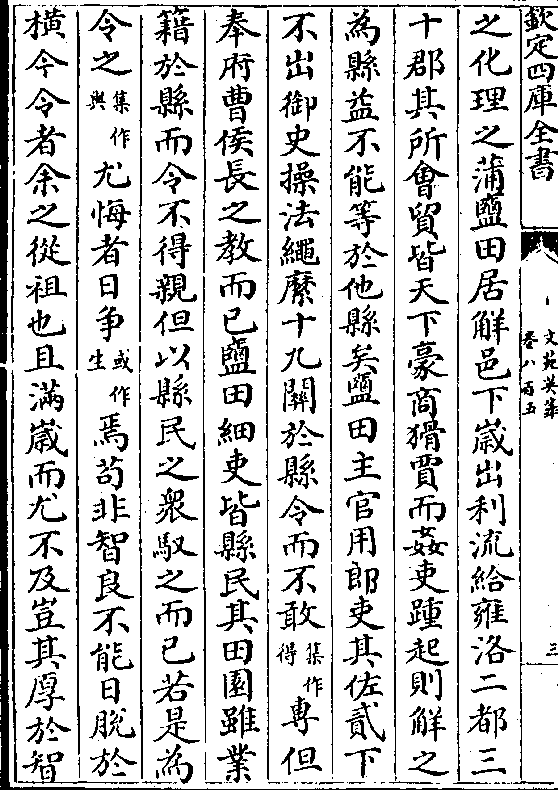 欽定四庫全書
文苑英華
卷八百五
三
之化理之蒲鹽田居解邑下歲出利流給雍洛二都三
十郡其所會貿皆天下豪商猾賈而姦吏踵起則解之
為縣益不能等於他縣矣鹽田主官用郎吏其佐貳下
不出御史操法繩縻十九關於縣令而不敢集作得專但
奉府曹侯長之教而已鹽田細吏皆縣民其田園雖業
籍於縣而令不得親但以縣民之衆馭之而已若是為
令之集作與尤悔者日爭或作生焉苟非智良不能日脫於
橫今令者余之從祖也且滿歲而尤不及豈其厚於智